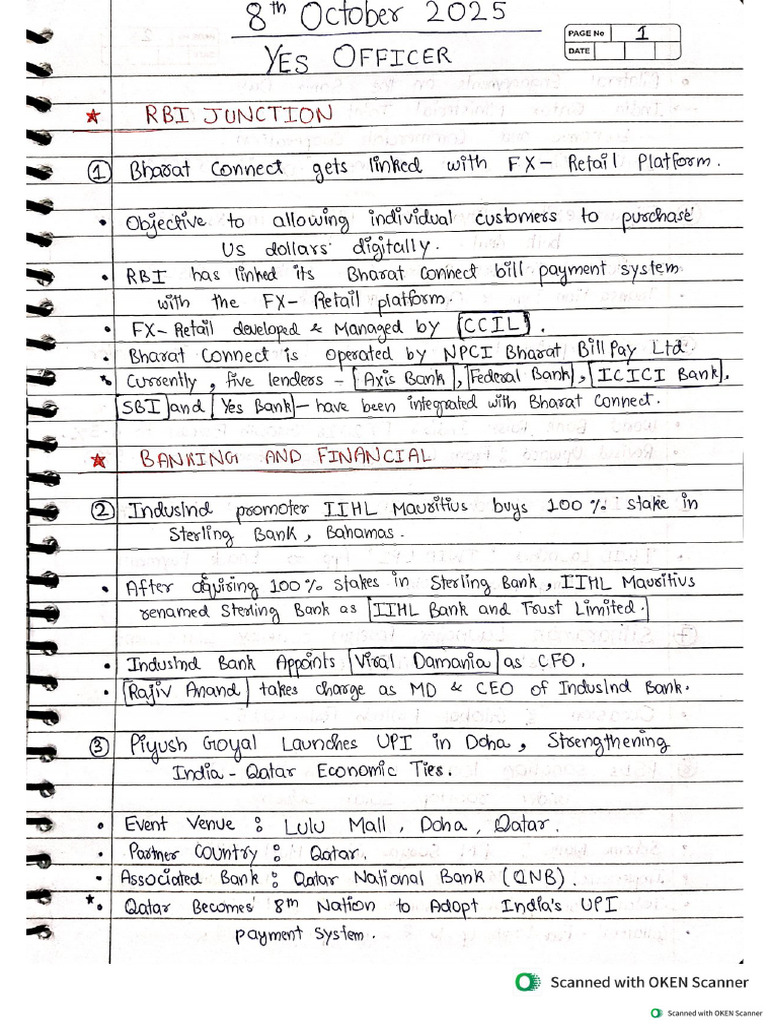 8th October 2025
PAGE No 1
DATE
YES OFFICER
★ RBI JUNCTION
① Bharat Connect gets linked with FX- Retail Platform.
• Objective to allowing individual customers to purchase
US dollars digitally.
• RBI has linked its Bharat Connect bill payment system
with the FX- Retail platform.
• FX- Retail developed & Managed by CCIL.
• Bharat Connect is Operated by NPCI Bharat Bill Pay Ltd.
* Currently, five lenders - Axis Bank, Federal Bank, ICICI Bank,
SBI and Yes Bank - have been integrated with Bharat Connect.
★ BANKING AND FINANCIAL
② IndusInd promoter IIHL Mauritius buys 100% stake in
Sterling Bank, Bahamas.
• After aquiring 100% stakes in Sterling Bank, IIHL Mauritius
renamed Sterling Bank as IIHL Bank and Trust Limited.
• IndusInd Bank Appoints Viral Damania as CFO.
• Rajiv Anand takes charge as MD & CEO of IndusInd Bank.
③ Piyush Goyal Launches UPI in Doha, Strengthening
India - Qatar Economic Ties.
• Event Venue : Lulu Mall, Doha, Qatar.
• Partner Country : Qatar.
• Associated Bank : Qatar National Bank (QNB).
* Qatar Becomes 8th Nation to Adopt India's UPI
payment System.
Scanned with OKEN Scanner
Scanned with OKEN Scanner